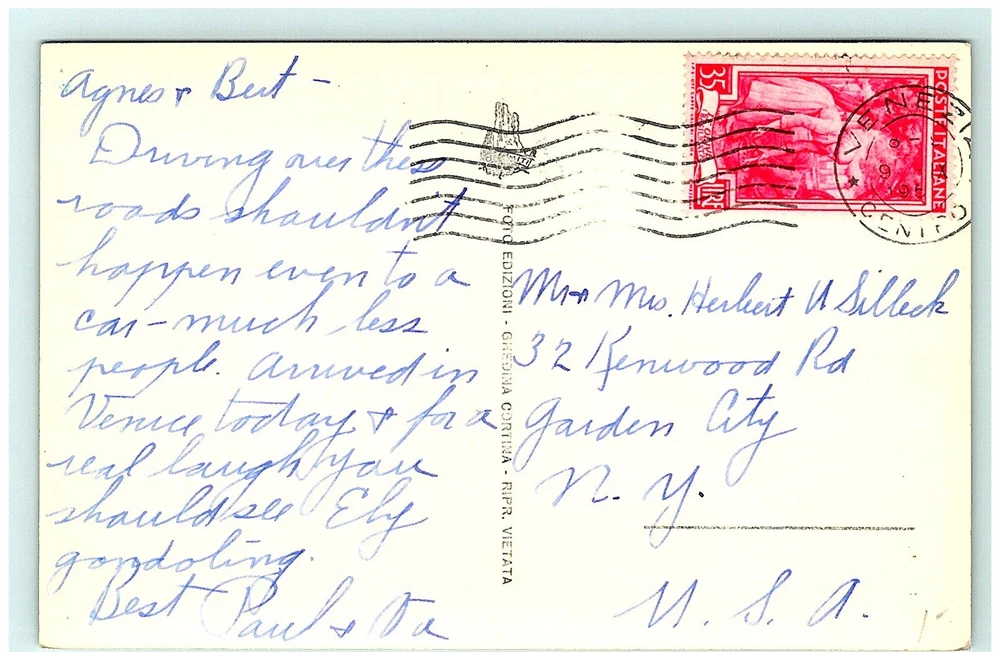 Agnes & Bert -
Driving over these
roads shouldn't
happen even to a
car - much less
people. Arrived in
Venice today & for a
real laugh you
should see Ely
gondoling.
Best Paul & Va
FOTO EDIZIONI - GHEDINA CORTINA - RIPR. VIETATA
POSTE ITALIANE
35
LIRE
VENEZIA
CENTRO
Mr & Mrs. Herbert V Silleck
32 Kenwood Rd
Garden City
N. Y.
U. S. A.